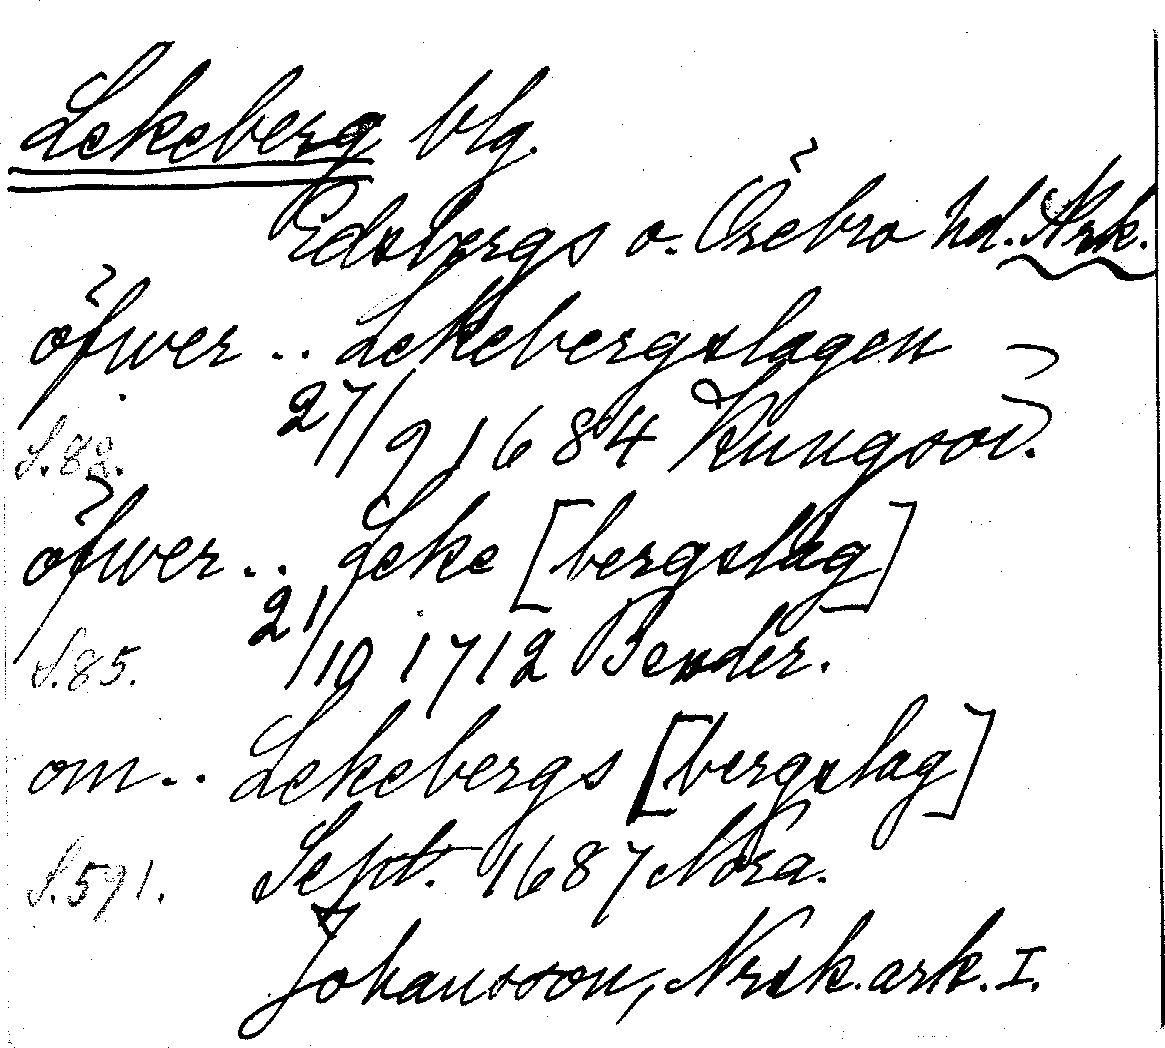 Lekeberg blg.
Edsbergs o. Örebro hd. Nrk.
öfwer .. Lekebergslagen
27/9 1684 Kungsör.
S. 82.
öfwer .. Leke [bergslag]
21/10 1712 Bender.
S. 85.
om .. Lekebergs [bergslag]
Sept. 1687 Nora.
S. 591.
Johansson, Nrsk. ark. I.